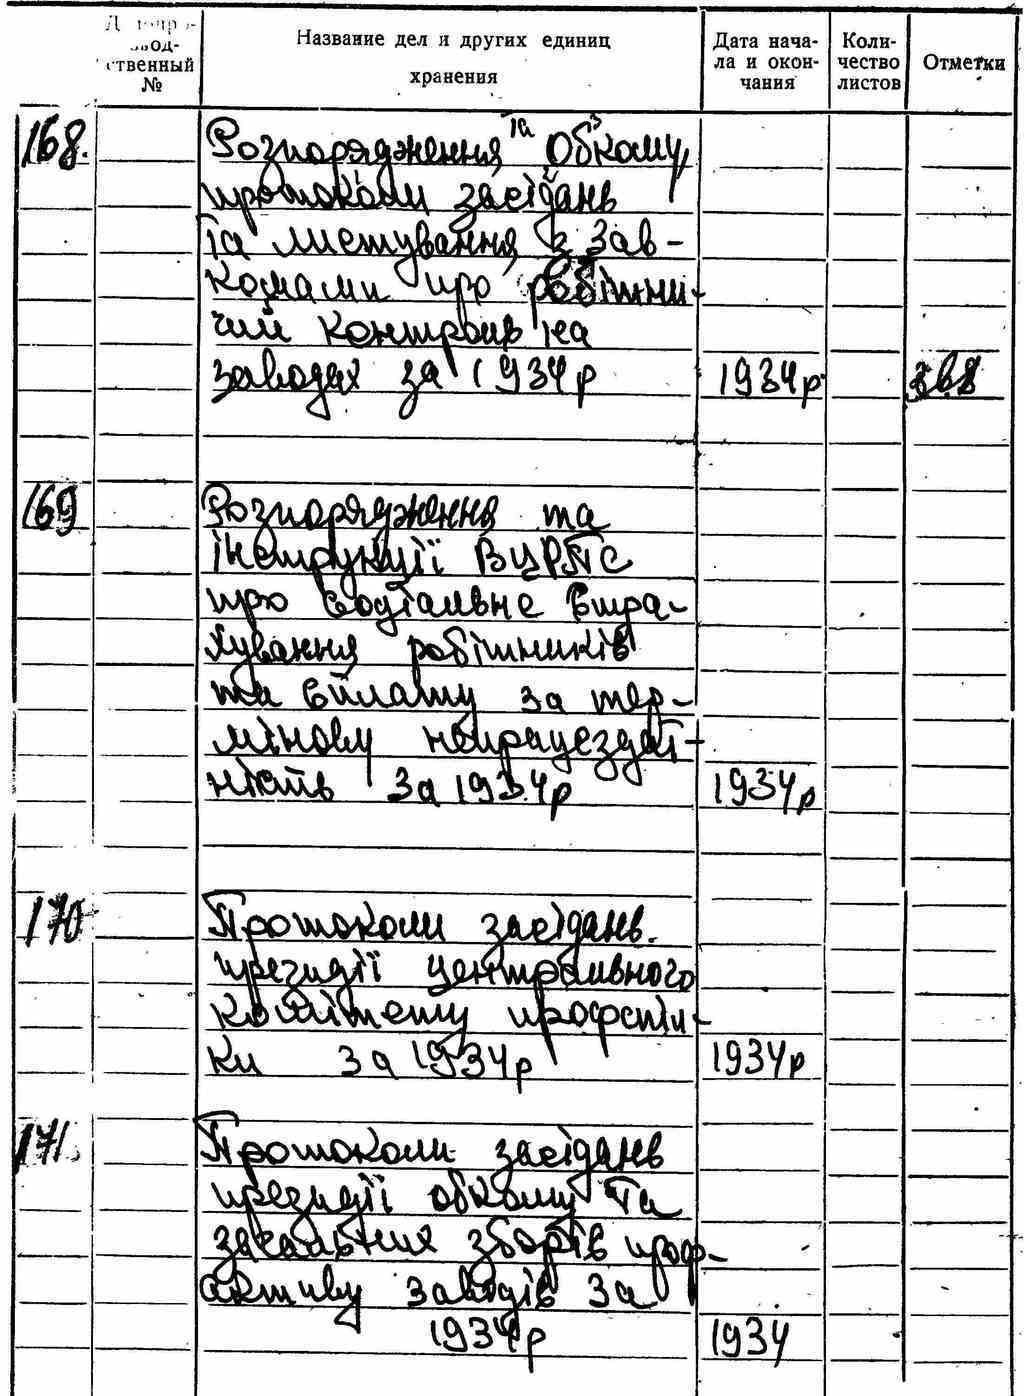 Делопро-
извод-
ственный
№
Название дел и других единиц
хранения
Дата нача-
ла и окон-
чания
Коли-
чество
листов
Отметки
168.
Розпорядження та Обкому,
протоколи засідань
та листування з зав-
комами про робітни-
чий контроль на
заводах за 1934р
1934р
169
Розпорядження та
інструкції ВЦРПС
про соціальне стра-
хування робітників
та сплату за тер-
мінову непрацездат-
ність за 1934р
1934р
170
Протоколи засідань
президії центрального
комітету профспіл-
ки за 1934р
1934р
171.
Протоколи засідань
президії обкому та
загальних зборів проф-
активу заводів за
1934р
1934